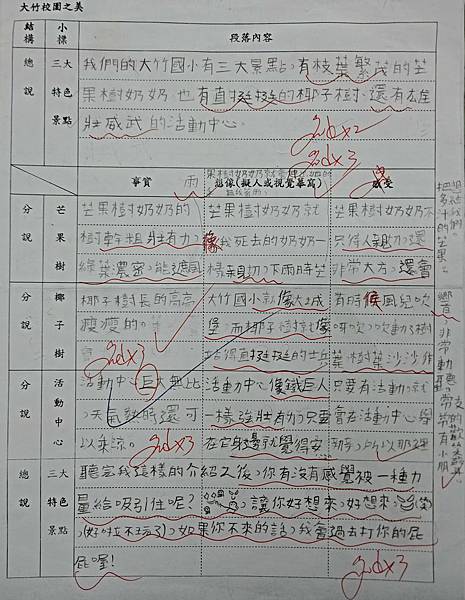 大竹校園之美
結構 小標 段落內容
總說 三大特色景點
我們的大竹國小有三大景點,有枝葉繁茂的芒
果樹奶奶,也有直挺挺的椰子樹,還有雄
壯威武的活動中心。
good×2
good×3
事實 想像(擬人或視覺摹寫) 感受
分說 芒果樹
芒果樹奶奶的
樹幹粗壯有力,
綠葉濃密,能遮風
雨
芒果樹奶奶就
像我死去的奶奶一
樣親切,下雨時芒
芒果樹奶奶不
只待人親切,還
非常大方,還會
把多汁的芒果
分說 椰子樹
椰子樹長的高高
瘦瘦的。
good×3
大竹國小就像大城
堡,而椰子樹就像
站得直挺挺的士兵
有時候風兒吹
呀吹,吹動了樹
葉,樹葉沙沙作
響
分說 活動中心
活動中心巨大無比
,天氣熱時還可
以乘涼。
good×3
活動中心像鐵人
一樣強壯有力,只要
在它身邊就覺得安
只要有活動,就
會在活動中心學
總說 三大特色景點
聽完我這樣的介紹之後,你有沒有感覺被一種力
量給吸引住呢?讓你好想來,好想來,
(好啦不玩了),如果你不來的話,我會過去打你的屁
屁喔!
good×3